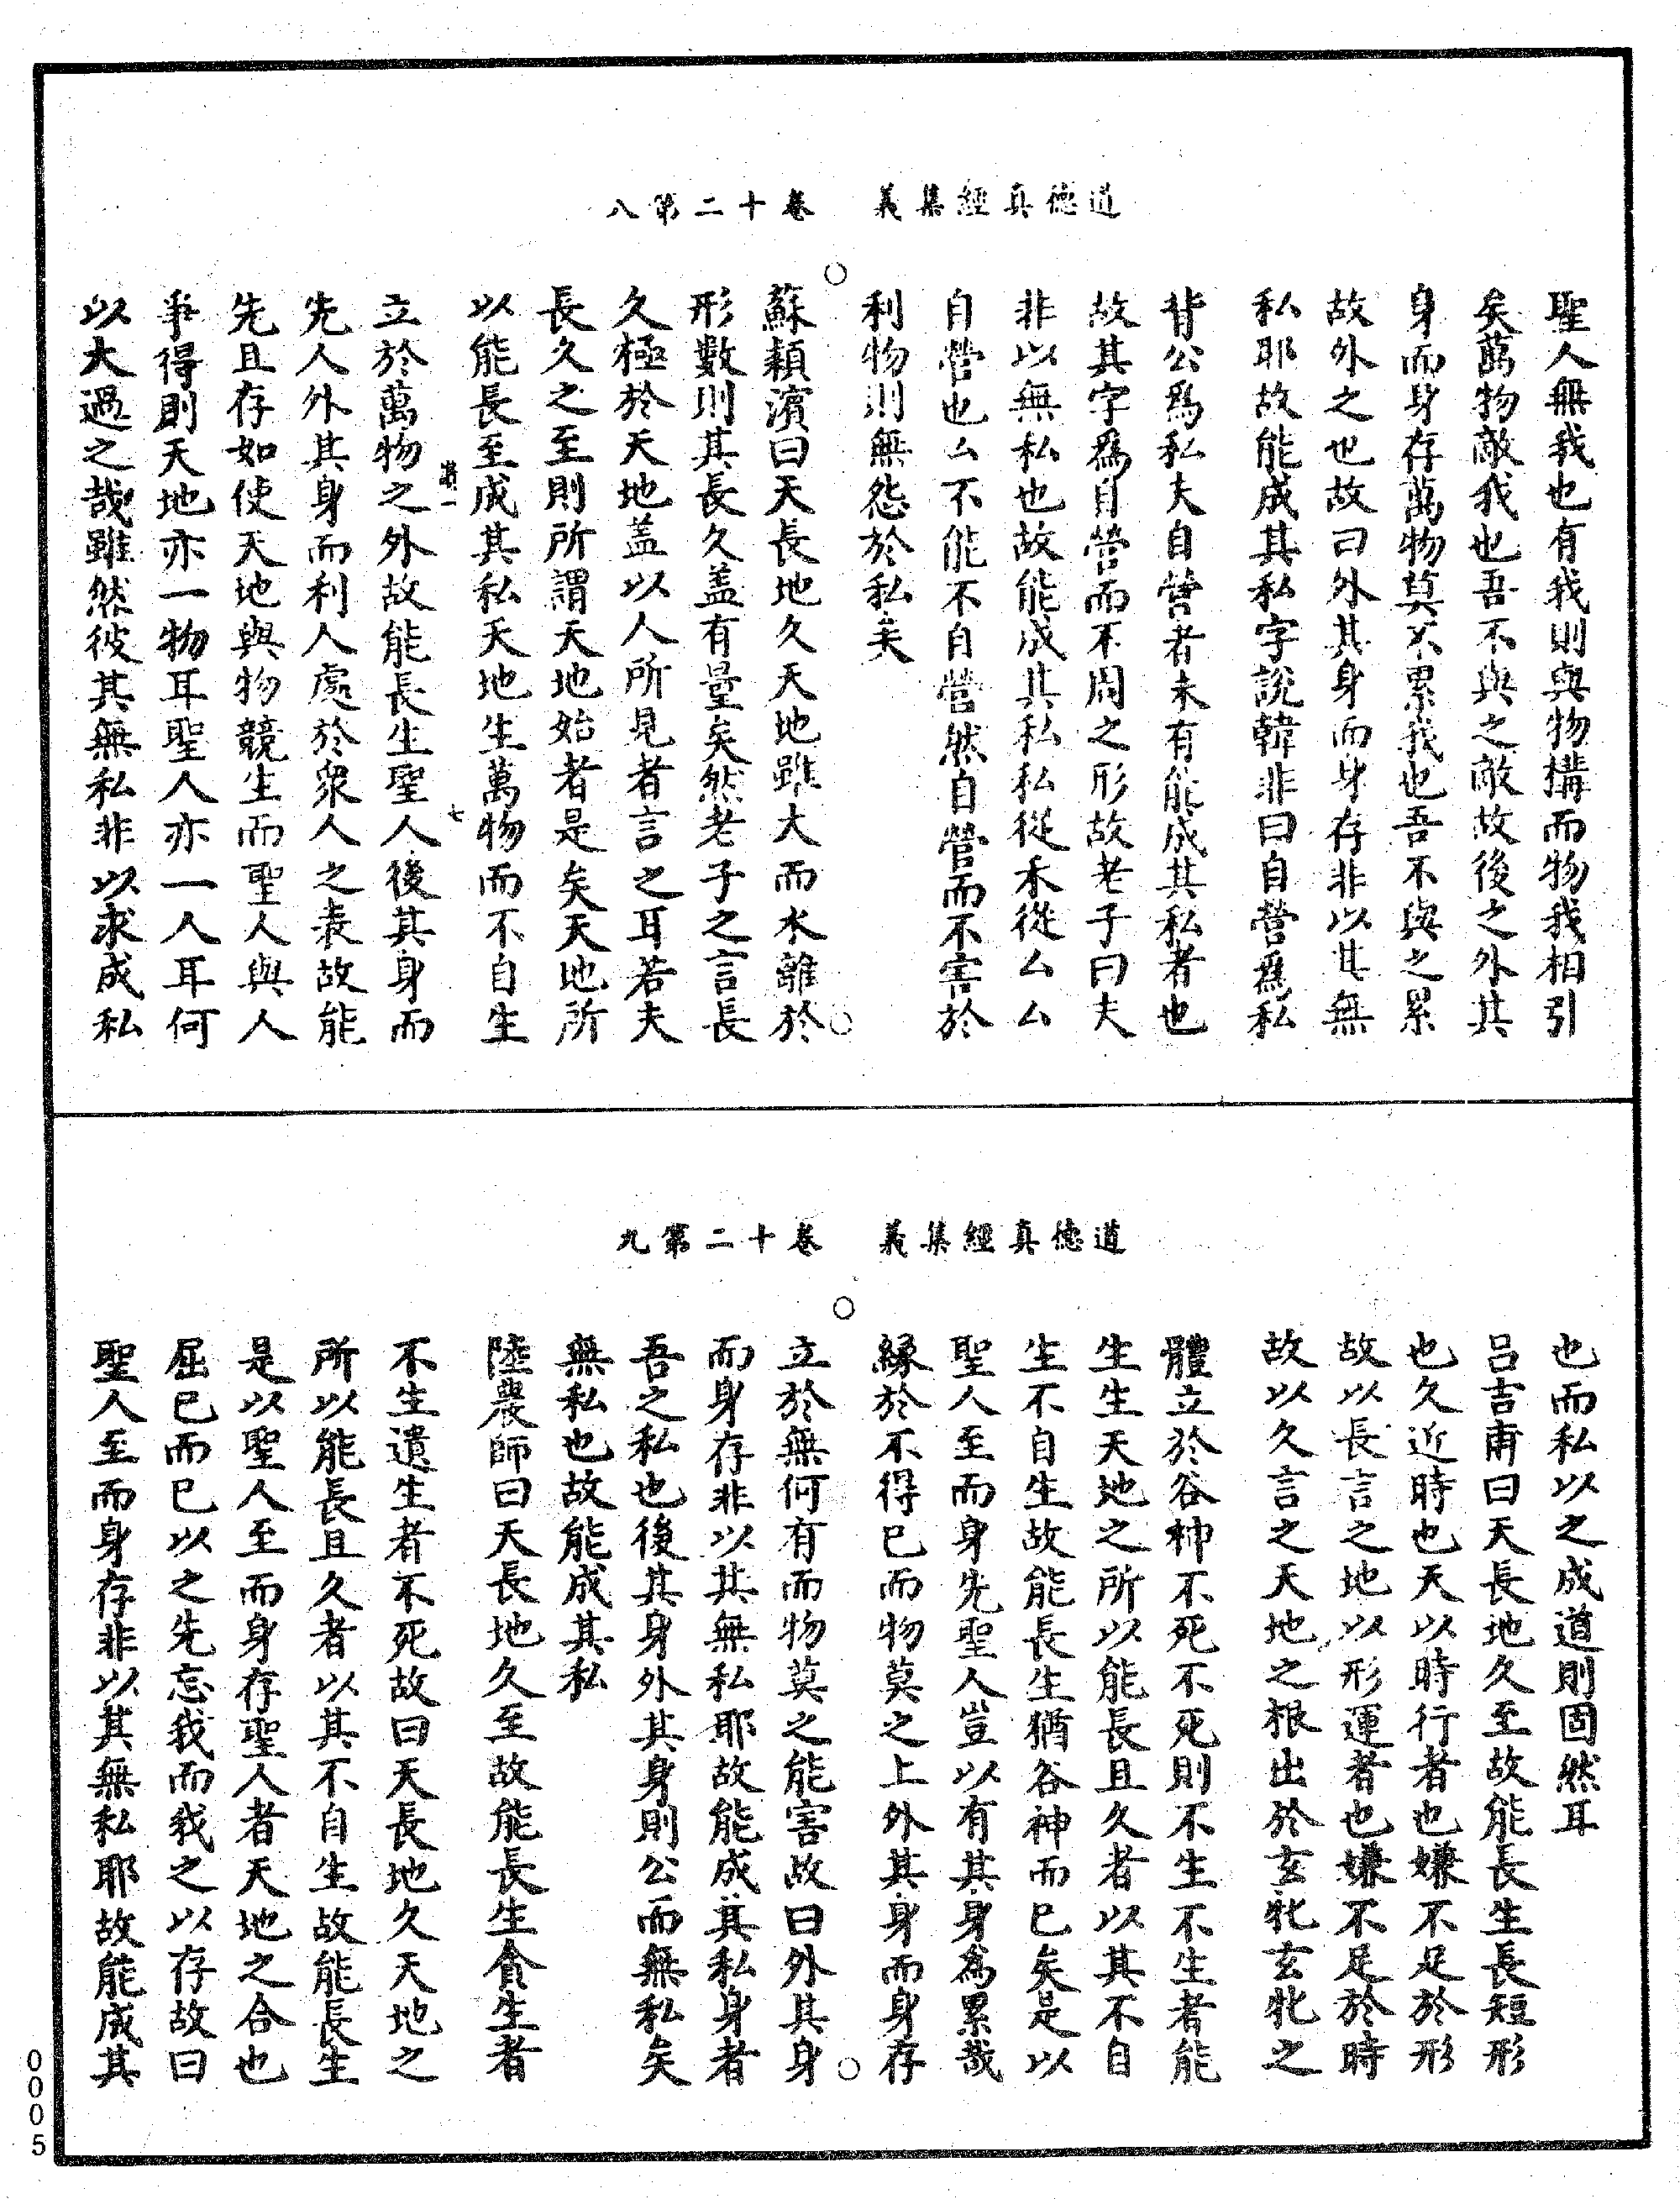 道德真經集義　卷十二第八
聖人無我也有我則與物構而物我相引
矣萬物敵我也吾不與之敵故後之外其
身而身存萬物莫不累我也吾不與之累
故外之也故曰外其身而身存非以其無
私耶故能成其私字說韓非曰自營爲私
背公爲私夫自營者未有能成其私者也
故其字爲自營而不周之形故老子曰夫
非以無私也故能成其私私從禾從厶厶
自營也厶不能不自營然自營而不害於
利物則無怨於私矣
蘇頴濱曰天長地久天地雖大而水離於
形數則其長久盖有量矣然老子之言長
久極於天地盖以人所見者言之耳若夫
長久之至則所謂天地始者是矣天地所
以能長至成其私天地生萬物而不自生
七
立於萬物之外故能長生聖人後其身而
先人外其身而利人處於衆人之表故能
先且存如使天地與物競生而聖人與人
爭得則天地亦一物耳聖人亦一人耳何
以大過之哉雖然彼其無私非以求成私
道德真經集義　卷十二第九
也而私以之成道則固然耳
呂吉甫曰天長地久至故能長生長短形
也久近時也天以時行者也嫌不足於形
故以長言之地以形運者也嫌不足於時
故以久言之天地之根出於玄牝玄牝之
體立於谷神不死不死則不生不生者能
生生天地之所以能長且久者以其不自
生不自生故能長生猶谷神而已矣是以
聖人至而身先聖人豈以有其身爲累哉
緣於不得已而物莫之上外其身而身存
立於無何有而物莫之能害故曰外其身
而身存非以其無私耶故能成其私身者
吾之私也後其身外其身則公而無私矣
無私也故能成其私
陸農師曰天長地久至故能長生貪生者
不生遺生者不死故曰天長地久天地之
所以能長且久者以其不自生故能長生
是以聖人至而身存聖人者天地之合也
屈己而已以之先忘我而我之以存故曰
聖人至而身存非以其無私耶故能成其
0005